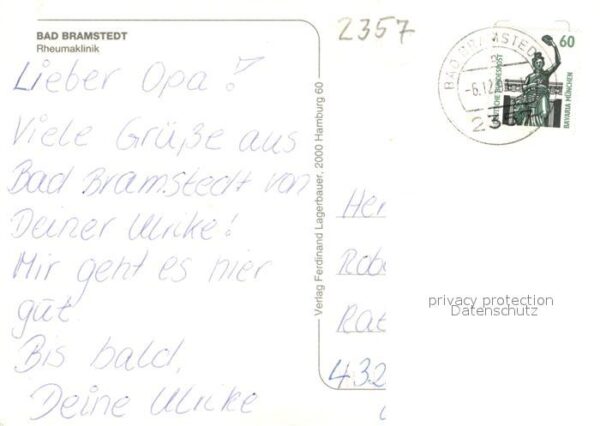 BAD BRAMSTEDT
Rheumaklinik
2357
Lieber Opa!
Viele Grüße aus
Bad Bramstedt von
Deiner Ulrike!
Mir geht es hier
gut.
Bis bald,
Deine Ulrike
Verlag Ferdinand Lagerbauer, 2000 Hamburg 60
BAD BRAMSTED
-6.12
2357
60
DEUTSCHE BUNDESPOST
BAVARIA MÜNCHEN
Her
Robe
Rat
432
privacy protection
Datenschutz